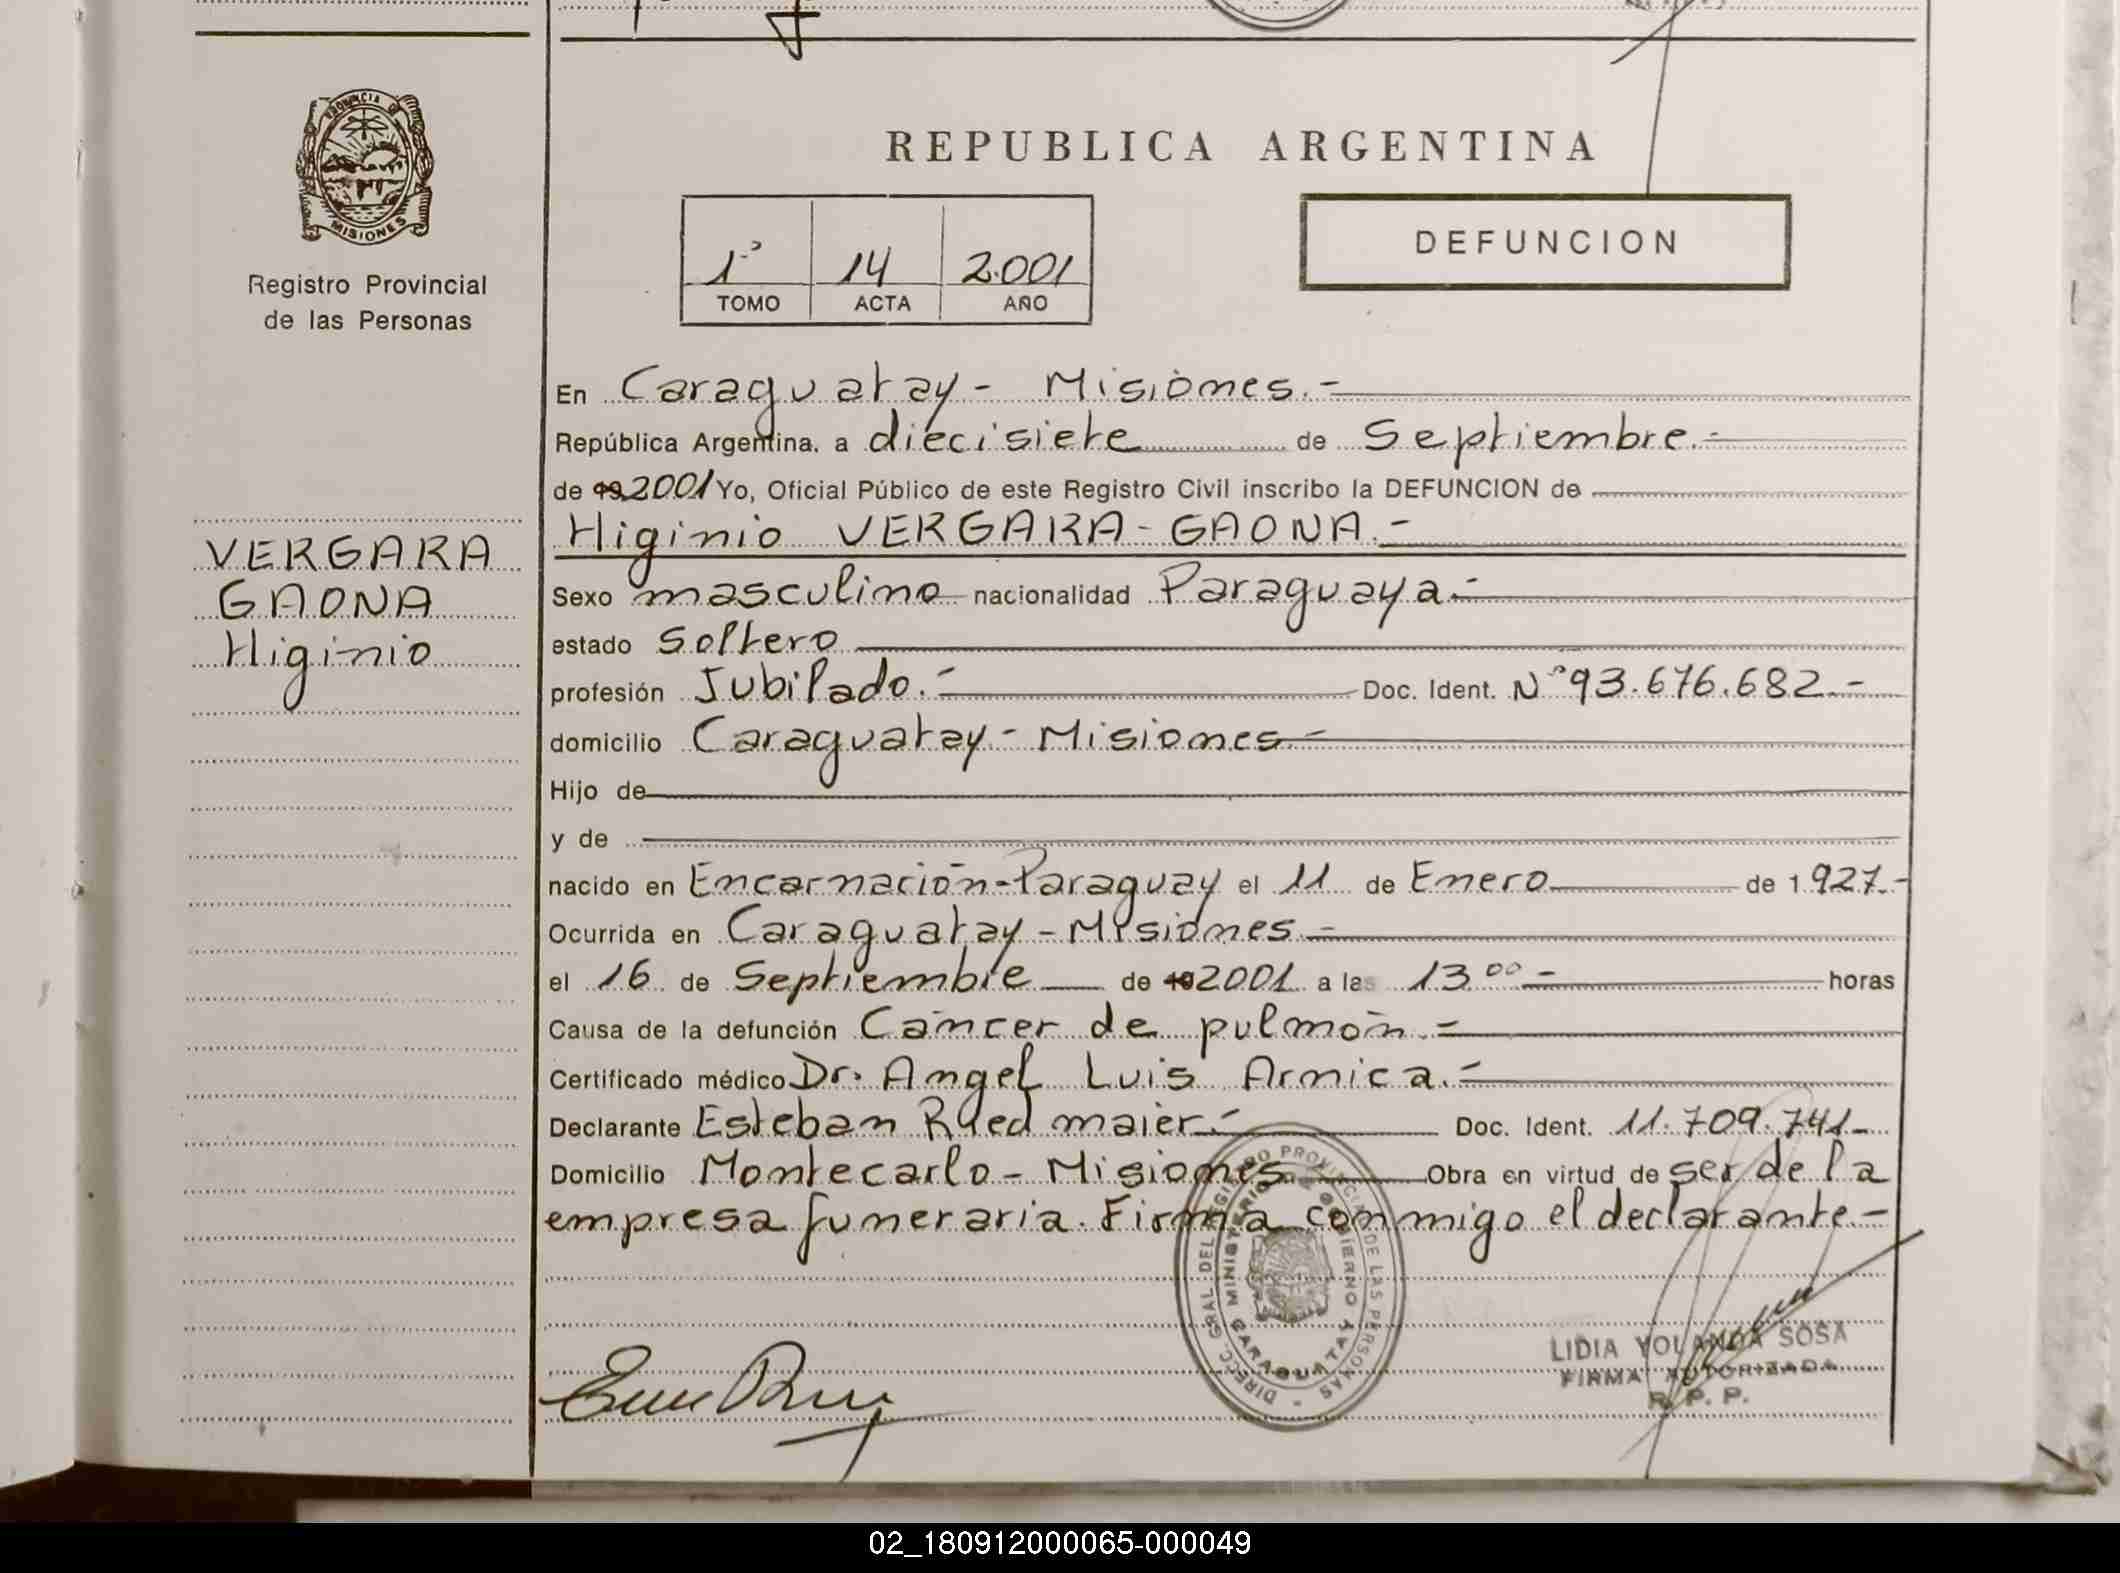 PROVINCIA DE
MISIONES
Registro Provincial
de las Personas
VERGARA
GAONA
Higinio
REPUBLICA ARGENTINA
1º 14 2.001
TOMO ACTA AÑO
DEFUNCION
En Caraguatay - Misiones.-
República Argentina, a diecisiete de Septiembre.-
de 19 2001 Yo, Oficial Público de este Registro Civil inscribo la DEFUNCION de
Higinio VERGARA - GAONA.-
Sexo masculino nacionalidad Paraguaya.-
estado Soltero
profesión Jubilado.- Doc. Ident. Nº 93.676.682.-
domicilio Caraguatay - Misiones.-
Hijo de
y de
nacido en Encarnación-Paraguay el 11 de Enero de 1.927.-
Ocurrida en Caraguatay - Misiones.-
el 16 de Septiembre de 19 2001 a las 13 00 - horas
Causa de la defunción Cáncer de pulmón.-
Certificado médico Dr. Angel Luis Arnica.-
Declarante Esteban Ruedmaier.- Doc. Ident. 11.709.741-
Domicilio Montecarlo - Misiones Obra en virtud de ser de la
empresa funeraria. Firma conmigo el declarante.-
DIRECC. GRAL. DEL REGISTRO PROVINCIAL DE LAS PERSONAS
MINISTERIO DE GOBIERNO
CARAGUATAY
LIDIA YOLANDA SOSA
FIRMA AUTORIZADA
R. P. P.
02_180912000065-000049